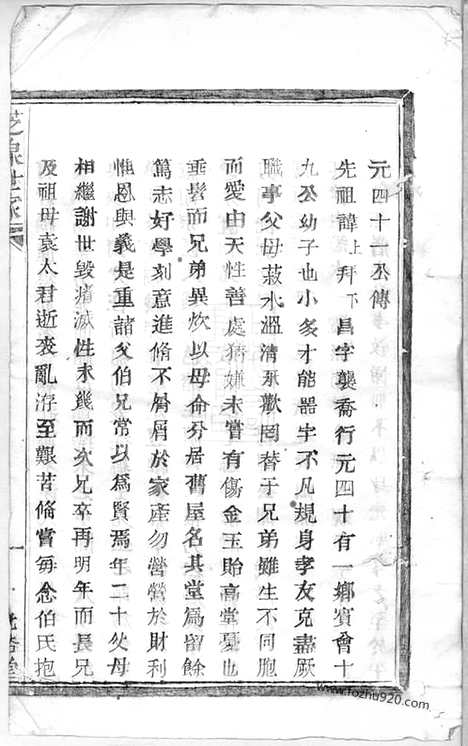 元四十一公傳
先祖諱上拜下昌字襲喬行元四十有一鄉賓曾十
九公幼子也小多才能器宇不凡規身孝友克盡厥
職事父母菽水溫清承歡罔替于兄弟雖生不同胞
而愛由天性善處猜嫌未嘗有傷金玉貽高堂憂也
垂髫而兄弟異炊以母命分居舊屋名其堂為留餘
篤志好學刻意進脩不屑屑於家產勿營營於財利
惟恩與義是重諸父伯兄常以為賢焉年二十父母
相繼謝世毀瘠滅性未幾而次兄卒再明年而長兄
及祖母袁太君逝喪亂洊至艱苦備嘗每念伯氏抱
芝泉世家
一
www.fozhu920.com